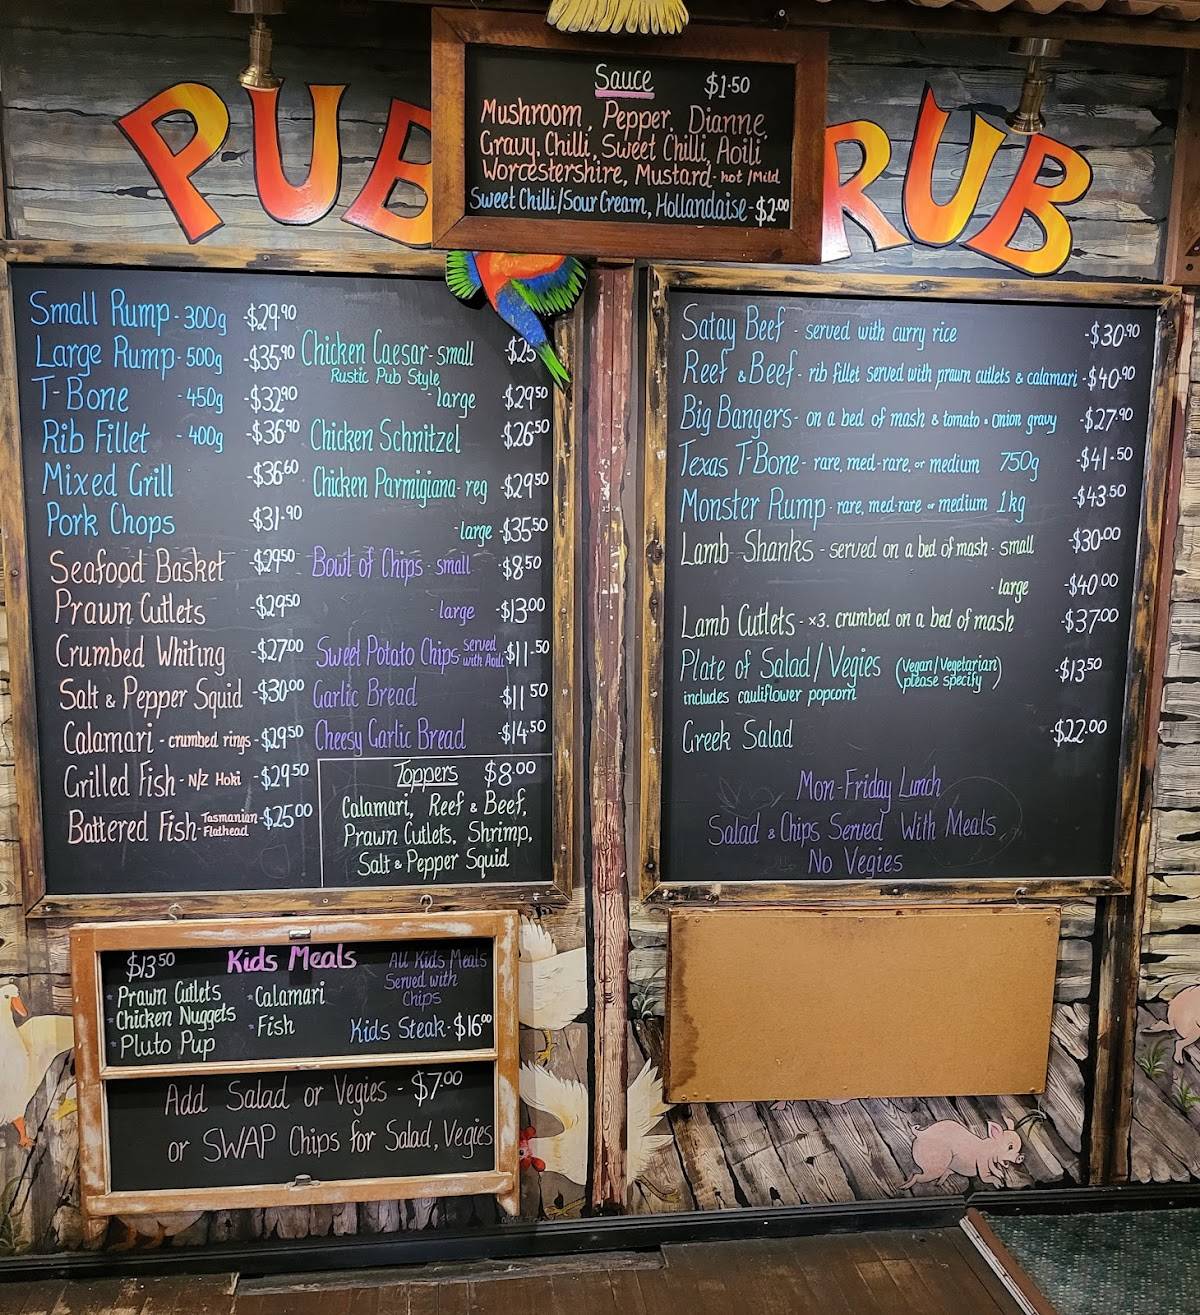 PUB RUB
Sauce $1.50
Mushroom, Pepper, Dianne,
Gravy, Chilli, Sweet Chilli, Aoili
Worcestershire, Mustard - hot / Mild
Sweet Chilli/Sour Cream, Hollandaise - $2.00
Small Rump - 300g - $29.90
Large Rump - 500g - $35.90
T-Bone - 450g - $32.90
Rib Fillet - 400g - $36.90
Mixed Grill - $36.60
Pork Chops - $31.90
Seafood Basket - $29.50
Prawn Cutlets - $29.50
Crumbed Whiting - $27.00
Salt & Pepper Squid - $30.00
Calamari - crumbed rings - $29.50
Grilled Fish - N/Z Hoki - $29.50
Battered Fish - Tasmanian Flathead - $25.00
Chicken Caesar - small - $25
Rustic Pub Style
- large - $29.50
Chicken Schnitzel - $26.50
Chicken Parmigiana - reg - $29.50
- large - $35.50
Bowl of Chips - small - $8.50
- large - $13.00
Sweet Potato Chips served with Aoili - $11.50
Garlic Bread - $11.50
Cheesy Garlic Bread - $14.50
Toppers $8.00
Calamari, Reef & Beef,
Prawn Cutlets, Shrimp,
Salt & Pepper Squid
Satay Beef - served with curry rice - $30.90
Reef & Beef - rib fillet served with prawn cutlets & calamari - $40.90
Big Bangers - on a bed of mash & tomato & onion gravy - $27.90
Texas T-Bone - rare, med-rare, or medium 750g - $41.50
Monster Rump - rare, med-rare or medium 1kg - $43.50
Lamb Shanks - served on a bed of mash - small - $30.00
- large - $40.00
Lamb Cutlets - x3. crumbed on a bed of mash - $37.00
Plate of Salad/Vegies (Vegan/Vegetarian please specify) - $13.50
includes cauliflower popcorn
Greek Salad - $22.00
Mon-Friday Lunch
Salad & Chips Served With Meals
No Vegies
$13.50 Kids Meals
• Prawn Cutlets
• Chicken Nuggets
• Pluto Pup
• Calamari
• Fish
All Kids Meals
Served with
Chips
Kids Steak - $16.00
Add Salad or Vegies - $7.00
or SWAP Chips for Salad, Vegies